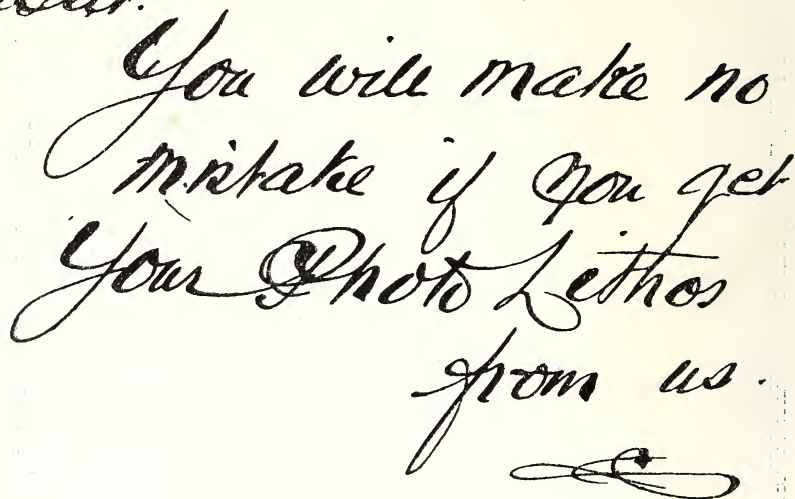 You will make no
mistake if you get
your Photo Lithos
from us.